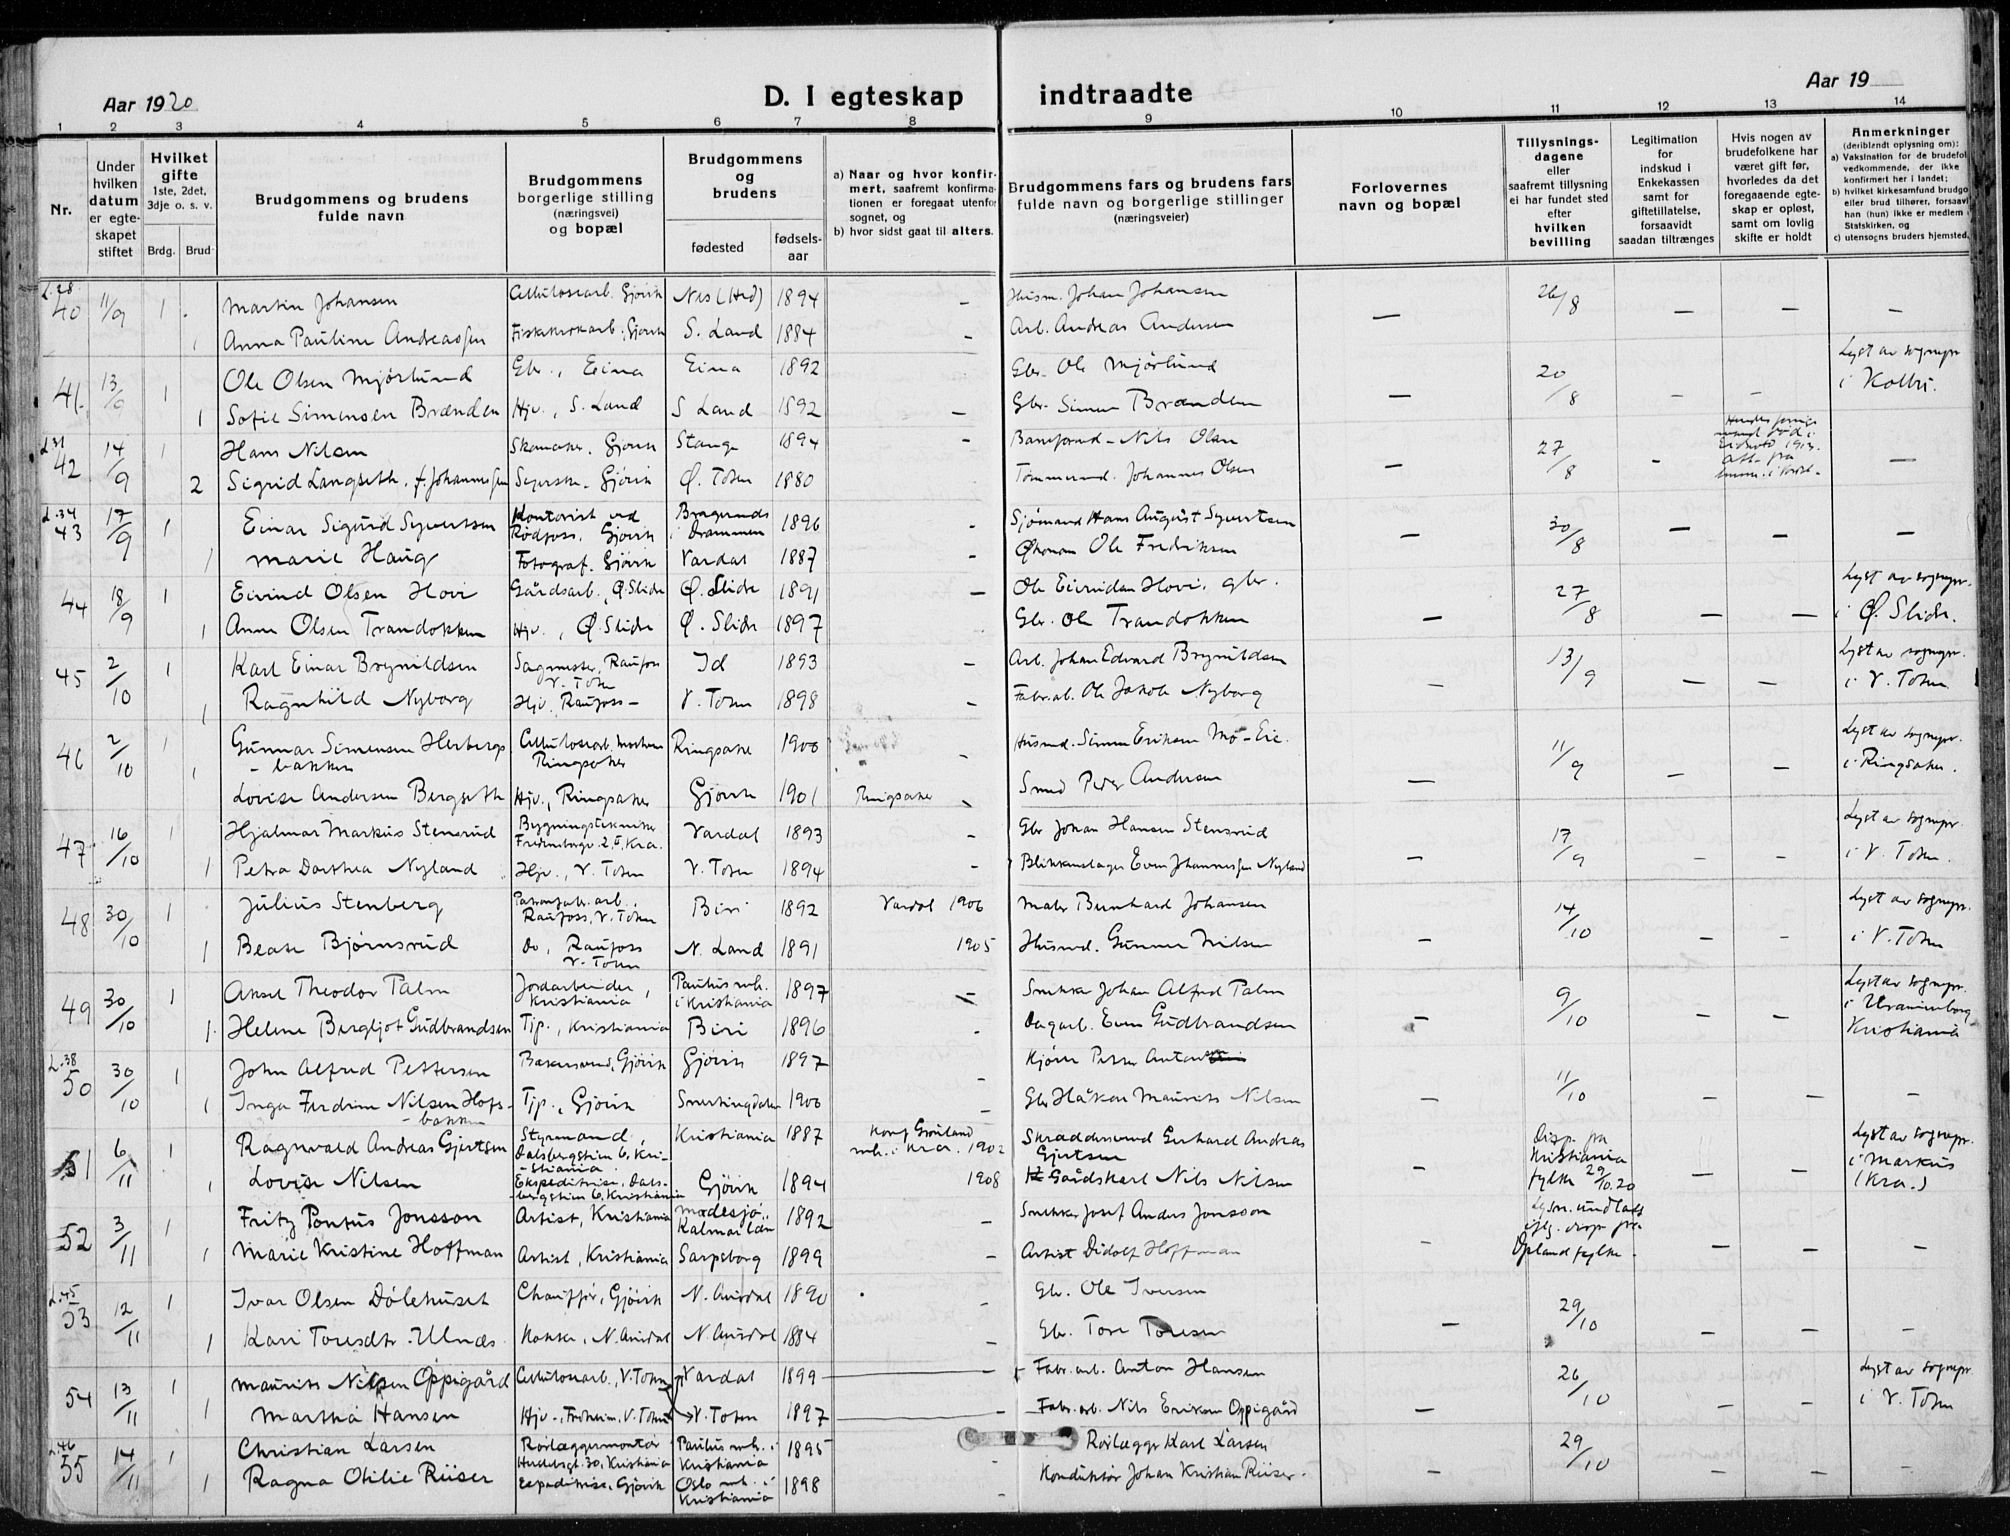 Aar 1920
D. I egteskap indtraadte
Aar 19
1 2 3 4 5 6 7 8 9 10 11 12 13 14
Nr.
Under hvilken datum er egteskapet stiftet
Hvilket gifte
1ste, 2det, 3dje o. s. v.
Brdg. Brud
Brudgommens og brudens fulde navn
Brudgommens borgerlige stilling (næringsvei) og bopæl
Brudgommens og brudens
fødested
fødselsaar
a) Naar og hvor konfirmert, saafremt konfirmationen er foregaat utenfor sognet, og
b) hvor sidst gaat til alters.
Brudgommens fars og brudens fars fulde navn og borgerlige stillinger (næringsveier)
Forlovernes navn og bopæl
Tillysningsdagene eller saafremt tillysning ei har fundet sted efter hvilken bevilling
Legitimation for indskud i Enkekassen samt for giftetillatelse, forsaavidt saadan tiltrænges
Hvis nogen av brudefolkene har været gift før, hvorledes da det foregaaende egteskap er opløst, samt om lovlig skifte er holdt
Anmerkninger
(deriblandt oplysning om):
a) Vaksination for de brudefol vedkommende, der ikke konfirmert her i landet;
b) hvilket kirkesamfund brudgo eller brud tilhører, forsaavi han (hun) ikke er medlem Statskirken, og
c) utensogns bruders hjemsted,
L. 28
40 11/9 1 Martin Johansen Cellulosearb. Gjøvik Nes (Hed) 1894 – Husm. Johan Johansen — 26/8 – – –
1 Anna Pauline Andreassen Fiskekrokarb., Gjøvik S. Land 1884 – Arb. Andreas Andersen
41. 13/9 1 Ole Olsen Mjørlund Gbr., Eina Eina 1892 Gbr. Ole Mjørlund — 20/8 – – Lyst av sognepr. i Kolbu.
1 Sofie Simensen Brænden Hjv., S. Land S Land 1892 – Gbr. Simen Brænden
L. 31
42 14/9 1 Hans Nilsen Skomaker, Gjøvik Stange 1894 – Baneformd. Nils Olsen — 27/8 – –
2 Sigrid Langseth, f. Johannessen Syerske, Gjøvik Ø. Toten 1880 Tømmermd. Johannes Olsen
L. 34
43 17/9 1 Einar Sigurd Syvertsen Kontorist ved Rødfoss, Gjøvik Bragernes i Drammen 1896 – Sjømand Hans August Syvertsen – 30/8 – – –
1 Marie Haug Fotograf. Gjøvik Vardal 1887 – Økonom Ole Fredriksen
44 18/9 1 Eivind Olsen Hovi Gårdsarb., Ø. Slidre Ø. Slidre 1891 – Ole Eivindsen Hovi, gbr. — 27/8 – – Lyst av sognepr. i Ø. Slidre.
1 Anne Olsen Trandokken Hjv., Ø. Slidre Ø. Slidre 1897 Gbr. Ole Trandokken
45 2/10 1 Karl Einar Brynildsen Sagmester, Raufoss V. Toten Id 1893 – Arb. Johan Edvard Brynildsen – 13/9 – – Lyst av sognepr. i V. Toten
1 Ragnhild Nyborg Hjv. Raufoss – V. Toten 1898 – Fabr.ab. Ole Jakob Nyborg
46 2/10 1 Gunnar Simensen Herbergsbakken Cellulosearb. Ringsaker Ringsaker 1900 – Husmd. Simen Eriksen Mo-Eie – 11/9 – – Lyst av sognepr. i Ringsaker.
1 Lovise Andersen Bergseth Hjv., Ringsaker Gjøvik 1901 Ringsaker – Smed Peder Andersen
47 16/10 1 Hjalmar Markus Stensrud Bygningstekniker Fredensborgv. 2 II, Kra. Vardal 1893 – Gbr Johan Hansen Stensrud – 17/9 – – Lyst av sognepr. i V. Toten.
1 Petra Dorthea Nyland Hjv., V. Toten V. Toten 1894 – Blikkenslager Even Johannessen Nyland
48 30/10 1 Julius Stenberg Patronfabr.arb. Raufoss, V. Toten Biri 1892 Vardal 1906 Maler Bernhard Johansen – 14/10 – – Lyst av sognepr. i V. Toten
1 Beate Bjørnsrud Do, Raufoss V. Toten N. Land 1891 1905 Husmd. Gunner Nilsen
49 30/10 1 Aksel Theodor Palm Jordarbeider, Kristiania Paulus mh. i Kristiania 1897 – Snekker Johan Alfred Palm – 9/10 – – Lyst av sognepr. i Uranienborg Kristiania
1. Helene Bergljot Gudbrandsen Tjp., Kristiania Biri 1896 – Dagarb. Even Gudbrandsen
L. 38
50 30/10 1 John Alfred Pettersen Bakersvend, Gjøvik Gjøvik 1897 – Kjører Petter Anton – 11/10 – – –
1 Inga Fredrine Nilsen Hofsbakken Tjp., Gjøvik Snertingdalen 1900 – Gbr Håkon Maurits Nilsen
51 6/11 1 Ragnvald Andreas Gjertsen Styrmand, Dalsbergstien 6, Kristiania Kristiania 1887 Konf Grønland mh. i Kra. 1902 Skræddersvend Gerhard Andreas Gjertsen – Disp. fra Kristiania fylke 29/10.20 – – Lyst av sognepr. i Markus (Kra.)
1 Lovise Nilsen Ekspeditrise, Dalsbergstien 6, Kristiania Gjøvik 1894 1908 Gårdskarl Nils Nilsen
52 3/11 1 Fritz Pontus Jonsson Artist, Kristiania Madesjö, Kalmar län 1892 – Snekker Josef Anders Jonsson – Lysn. undlatt iflg. disp. fra Opland fylke. – – –
1 Marie Kristine Hoffman Artist, Kristiania Sarpsborg 1899 – Artist Didolf Hoffman
L. 45
53 12/11 1 Ivar Olsen Dølehuset Chauffør, Gjøvik N. Aurdal 1890 – Gbr. Ole Iversen – 29/10 – – –
1 Kari Toresdtr. Ulnæs Kokke, N. Aurdal N. Aurdal 1884 – Gbr. Tore Toresen
54 13/11 1 Maurits Nilsen Oppigård Cellulosearb., V. Toten Vardal 1899 – Fabr.arb. Anton Hansen – 26/10 – – Lyst av sognepr. i V. Toten
1 Martha Hansen Hjv., Fredheim, V. Toten V. Toten 1897 – Fabr.arb. Nils Eriksen Oppigård
L. 46
55 14/11 1 Christian Larsen Rørlæggermontør Kristiania Paulus mh. i Kristiania 1895 – Rørlægger Karl Larsen – 29/10 – – –
1 Ragna Otilie Riiser Expeditrise, Gjøvik Oslo mh. i Kristiania 1898 – Konduktør Johan Kristian Riiser.